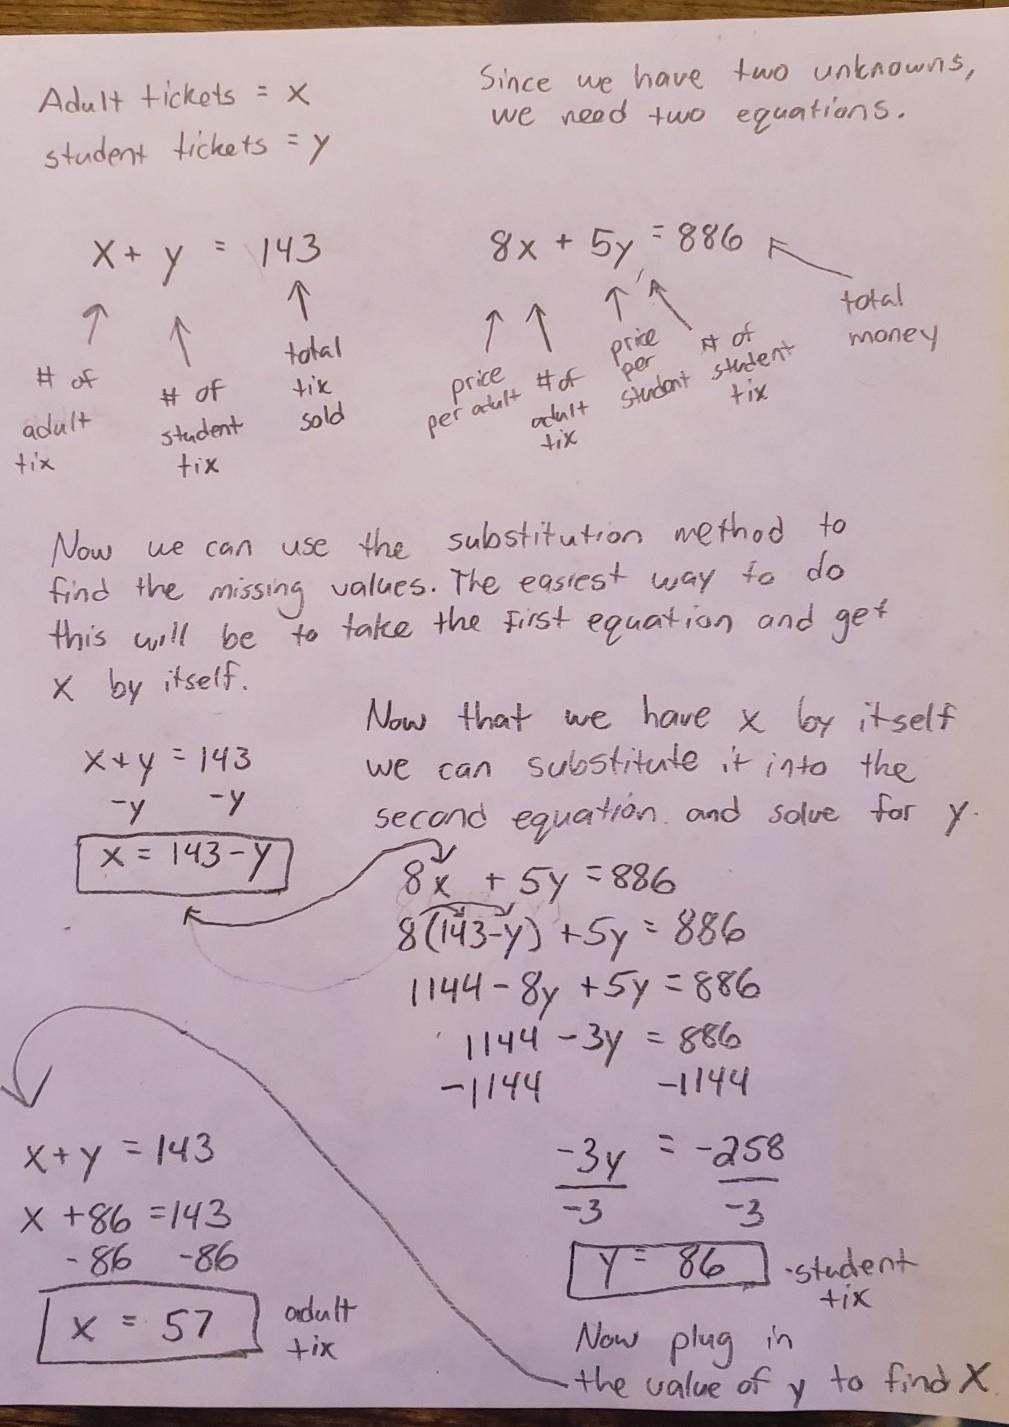 Adult tickets = x
student tickets = y
Since we have two unknowns,
we need two equations.
x + y = 143
# of
adult
tix
# of
student
tix
total
tix
sold
8x + 5y = 886
price
per adult
# of
adult
tix
price
per
student
# of
student
tix
total
money
Now we can use the substitution method to
find the missing values. The easiest way to do
this will be to take the first equation and get
x by itself.
x + y = 143
-y -y
x = 143 - y
Now that we have x by itself
we can substitute it into the
second equation and solve for y.
8x + 5y = 886
8(143-y) + 5y = 886
1144 - 8y + 5y = 886
1144 - 3y = 886
-1144 -1144
-3y = -258
-3 -3
y = 86
-student
tix
Now plug in
the value of y to find x.
x + y = 143
x + 86 = 143
-86 -86
x = 57
adult
tix